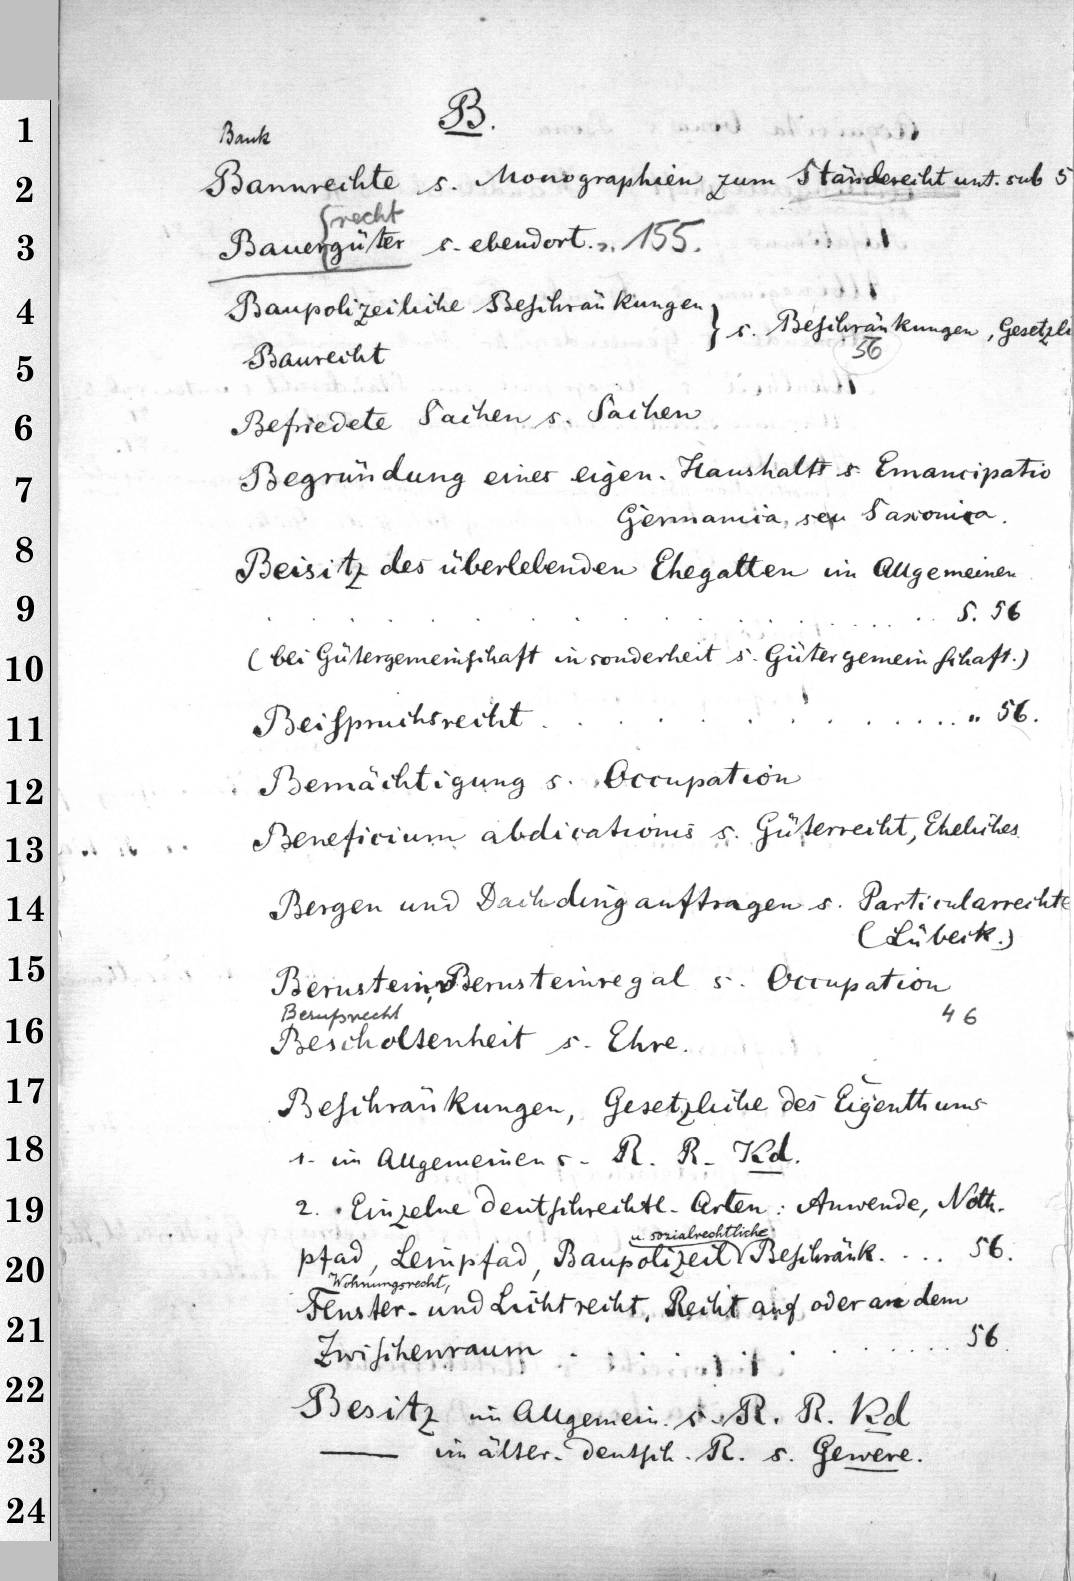 B.
1 Bank
2 Bannrechte s. Monographien zum Ständerecht unt. sub 5
recht
3 Bauergüter s. ebendort. 155.
4 Baupolizeiliche Beschränkungen } s. Beschränkungen, Gesetzli
56
5 Baurecht
6 Befriedete Sachen s. Sachen
7 Begründung eines eigen. Haushalts s. Emancipatio
Germanica seu Saxonica.
8 Beisitz des überlebenden Ehegatten im Allgemeinen
9 . . . . . . . . . . S. 56
10 (bei Gütergemeinschaft insonderheit s. Gütergemeinschaft.)
11 Beispruchsrecht . . . . . . . . . . " 56.
12 Bemächtigung s. Occupation
13 Beneficium abdicationis s. Güterrecht, Eheliches
14 Bergen und Dachding auftragen s. Particularrechte
(Lübeck.)
15 Bernstein, Bernsteinregal s. Occupation
Berufsrecht 46
16 Bescholtenheit s. Ehre.
17 Beschränkungen, Gesetzliche des Eigenthums
18 1. im Allgemeinen s. R. R. Kd.
19 2. Einzelne deutschrechtl. Arten: Anwende, Noth-
u. sozialrechtliche
20 pfad, Leinpfad, Baupolizeil Beschränk. . . . 56.
Wohnungsrecht,
21 Fenster- und Lichtrecht, Recht auf oder an dem
Zwischenraum . . . . . . . . . . 56
22 Besitz im Allgemein. s. R. R. Kd
23 —— im älter. deutsch. R. s. Gewere.
24